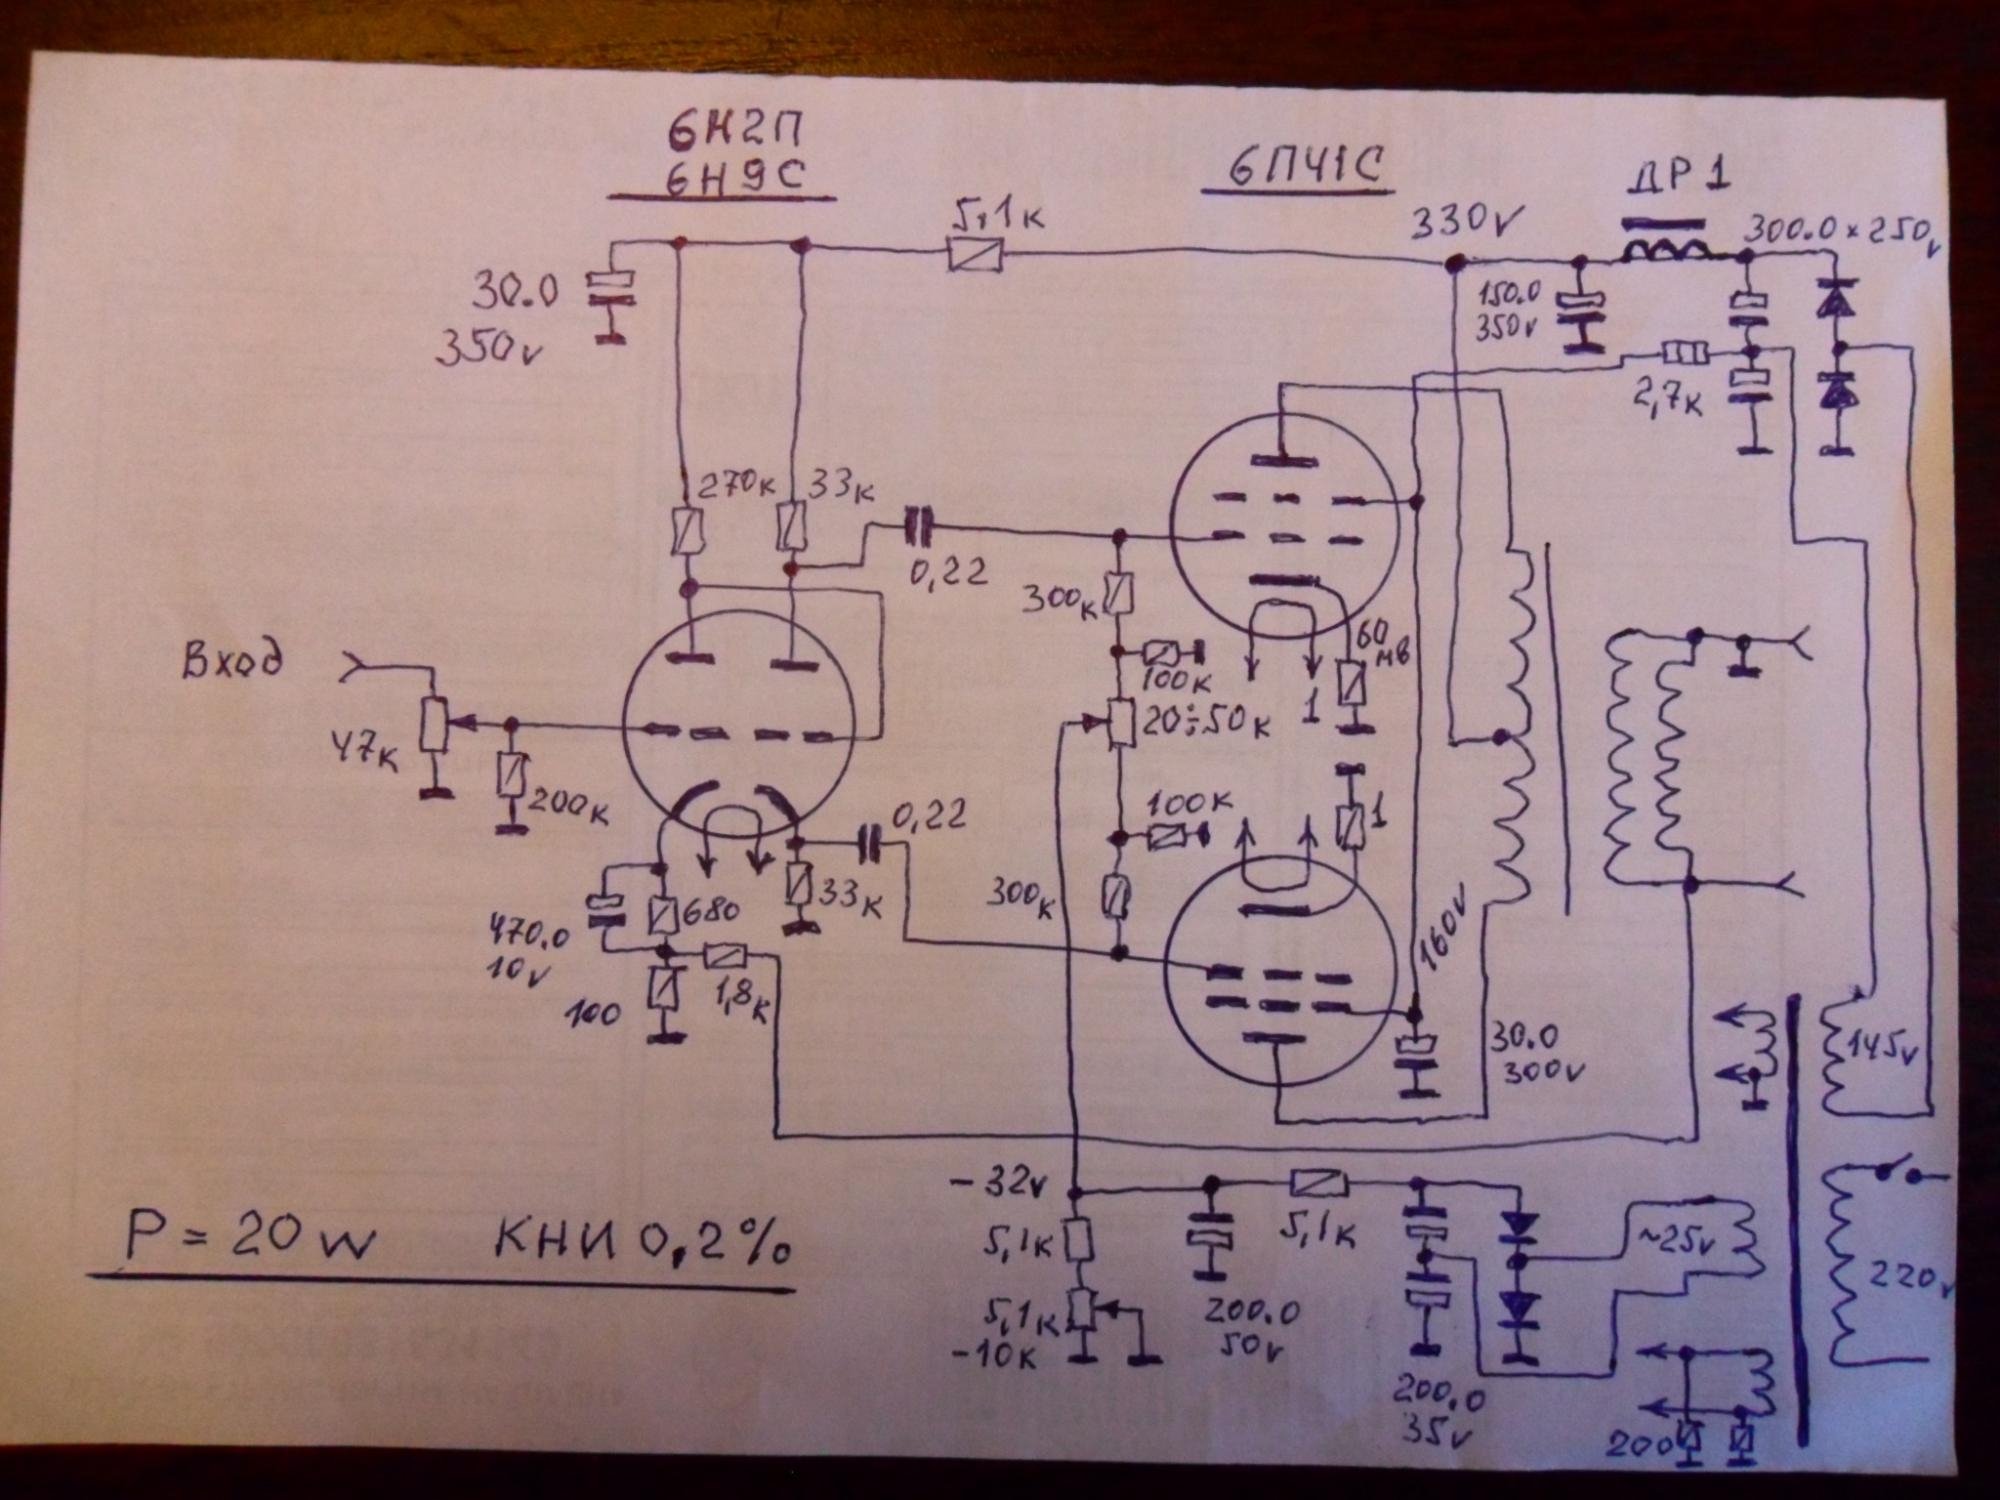 6Н2П
6Н9С
6П41С
ДР1
5,1к
330v
300.0 × 250v
30.0
350v
150.0
350v
2,7к
270к
33к
0,22
300к
60
мв
1
100к
20÷50к
Вход
47к
200к
0,22
100к
1
300к
33к
680
470.0
10v
1,8к
100
160v
30.0
300v
145v
-32v
5,1к
5,1к
~25v
220v
P = 20w КНИ 0,2%
5,1к
-10к
200.0
50v
200.0
35v
200